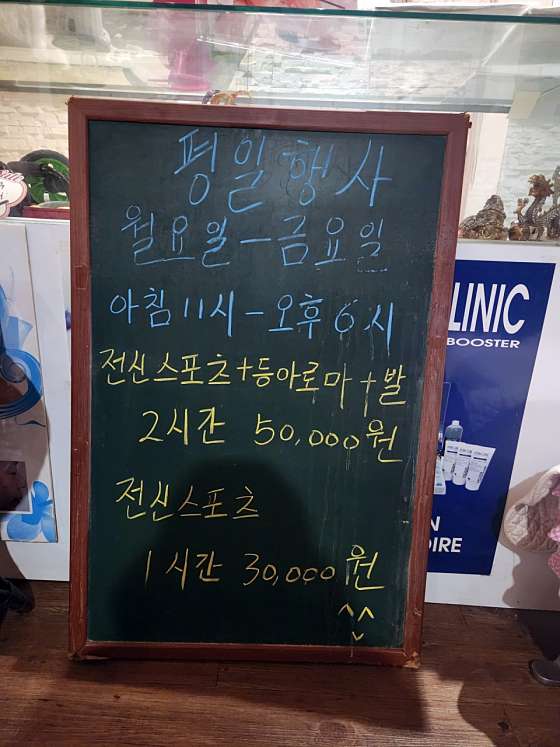 평일행사
월요일-금요일
아침 11시-오후 6시
전신스포츠+등아로마+발
2시간 50,000원
전신스포츠
1시간 30,000원
^^
LINIC
BOOSTER
N
OIRE